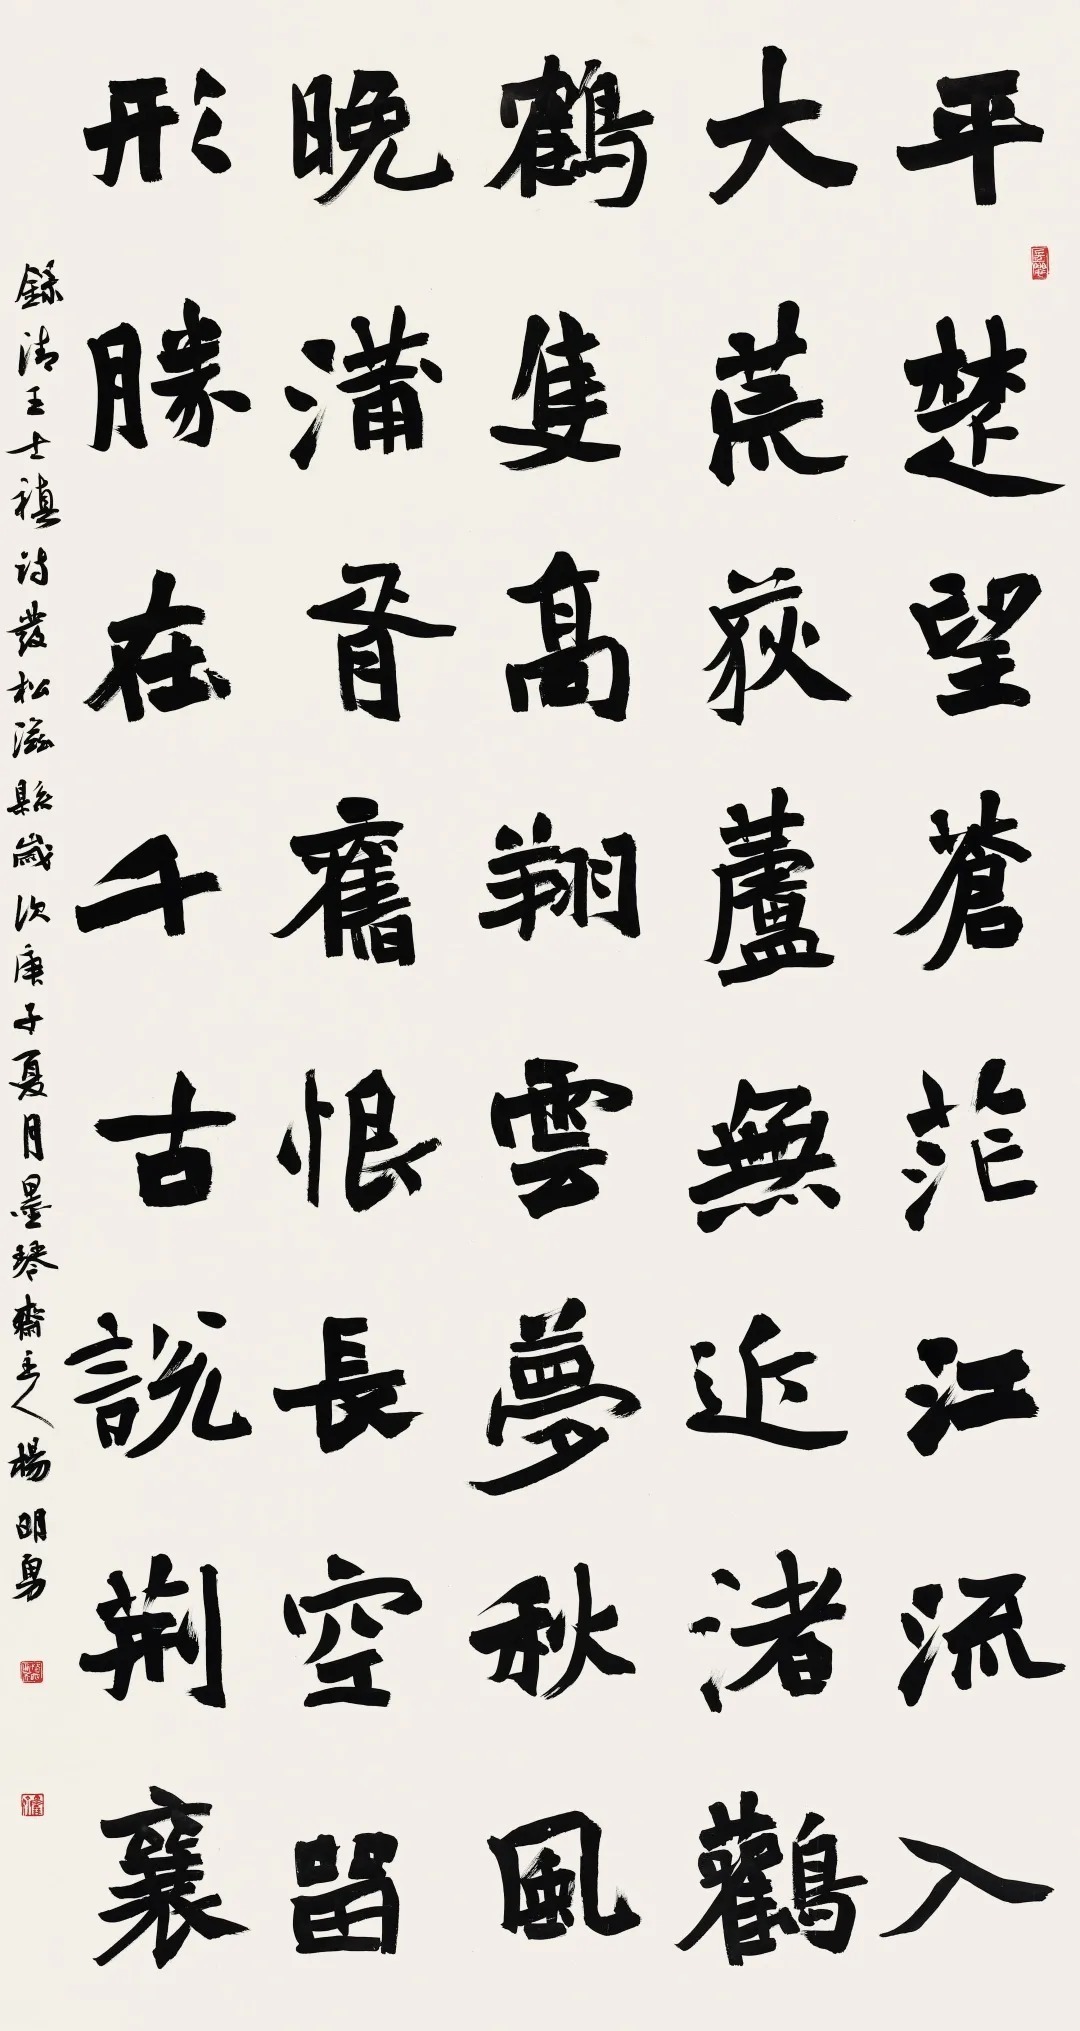 平楚望蒼茫江流入
大荒荻蘆無近渚鸛
鶴隻高翔雲夢秋風
晚蒲胥舊恨長空留
形勝在千古說荆襄
錄清王士禛詩發松滋縣歲次庚子夏月墨琴齋主人楊明勇